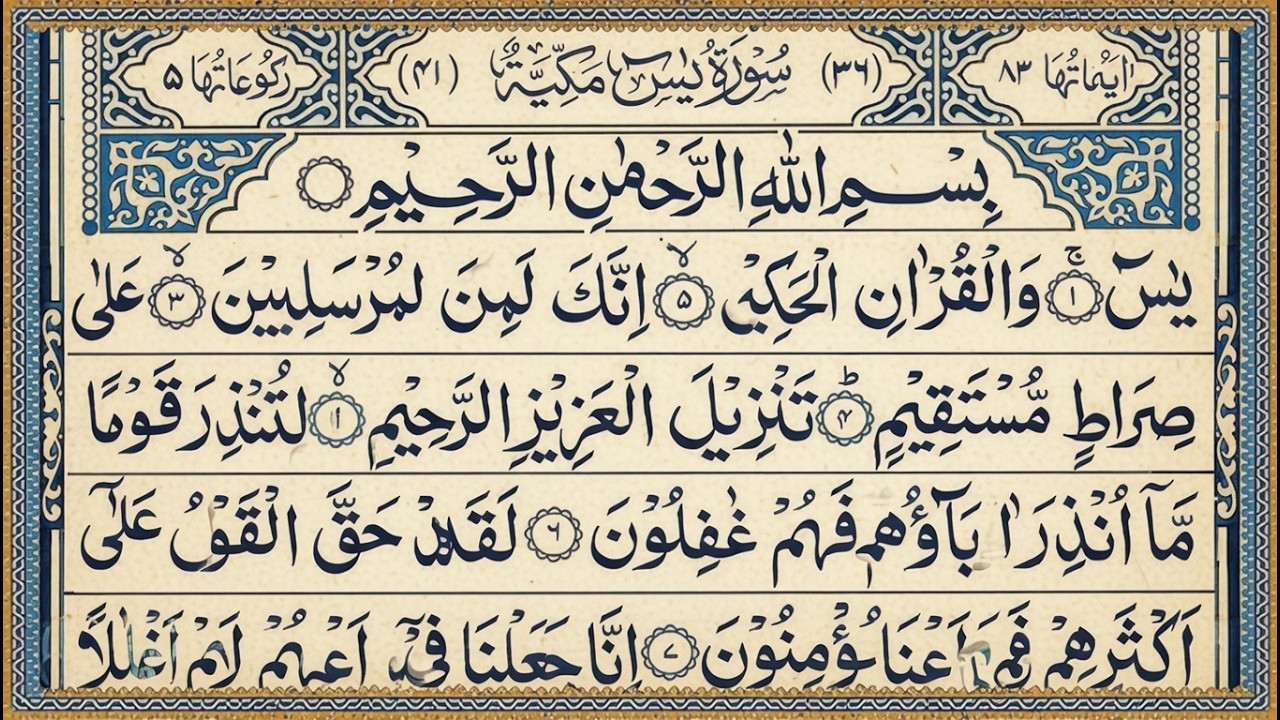 اٰیٰاتُهَا ٨٣ (٣٦) سُوْرَةُ يٰسٓ مَكِّيَّةٌ (٤١) رَكُوْعَاتُهَا ٥
بِسْمِ اللّٰهِ الرَّحْمٰنِ الرَّحِيْمِ
يٰسٓ ١ وَالْقُرْاٰنِ الْحَكِيْ ٥ اِنَّكَ لَمِنَ لمُرْسَلِيْنَ ٣ عَلٰى
صِرَاطٍ مُّسْتَقِيْمٍ ٤ تَنْزِيْلَ الْعَزِيْزِ الرَّحِيْمِ ١ لتُنْذِرَ قَوْمًا
مَّآ اُنْذِرَ اٰبَآؤُهُمْ فَهُمْ غٰفِلُوْنَ ٦ لَقَدْ حَقَّ الْقَوْلُ عَلٰٓى
اَكْثَرِهِمْ يُؤْمِنُوْنَ ٧ اِنَّا جَعَلْنَا فِيْٓ اَغْلٰلًا